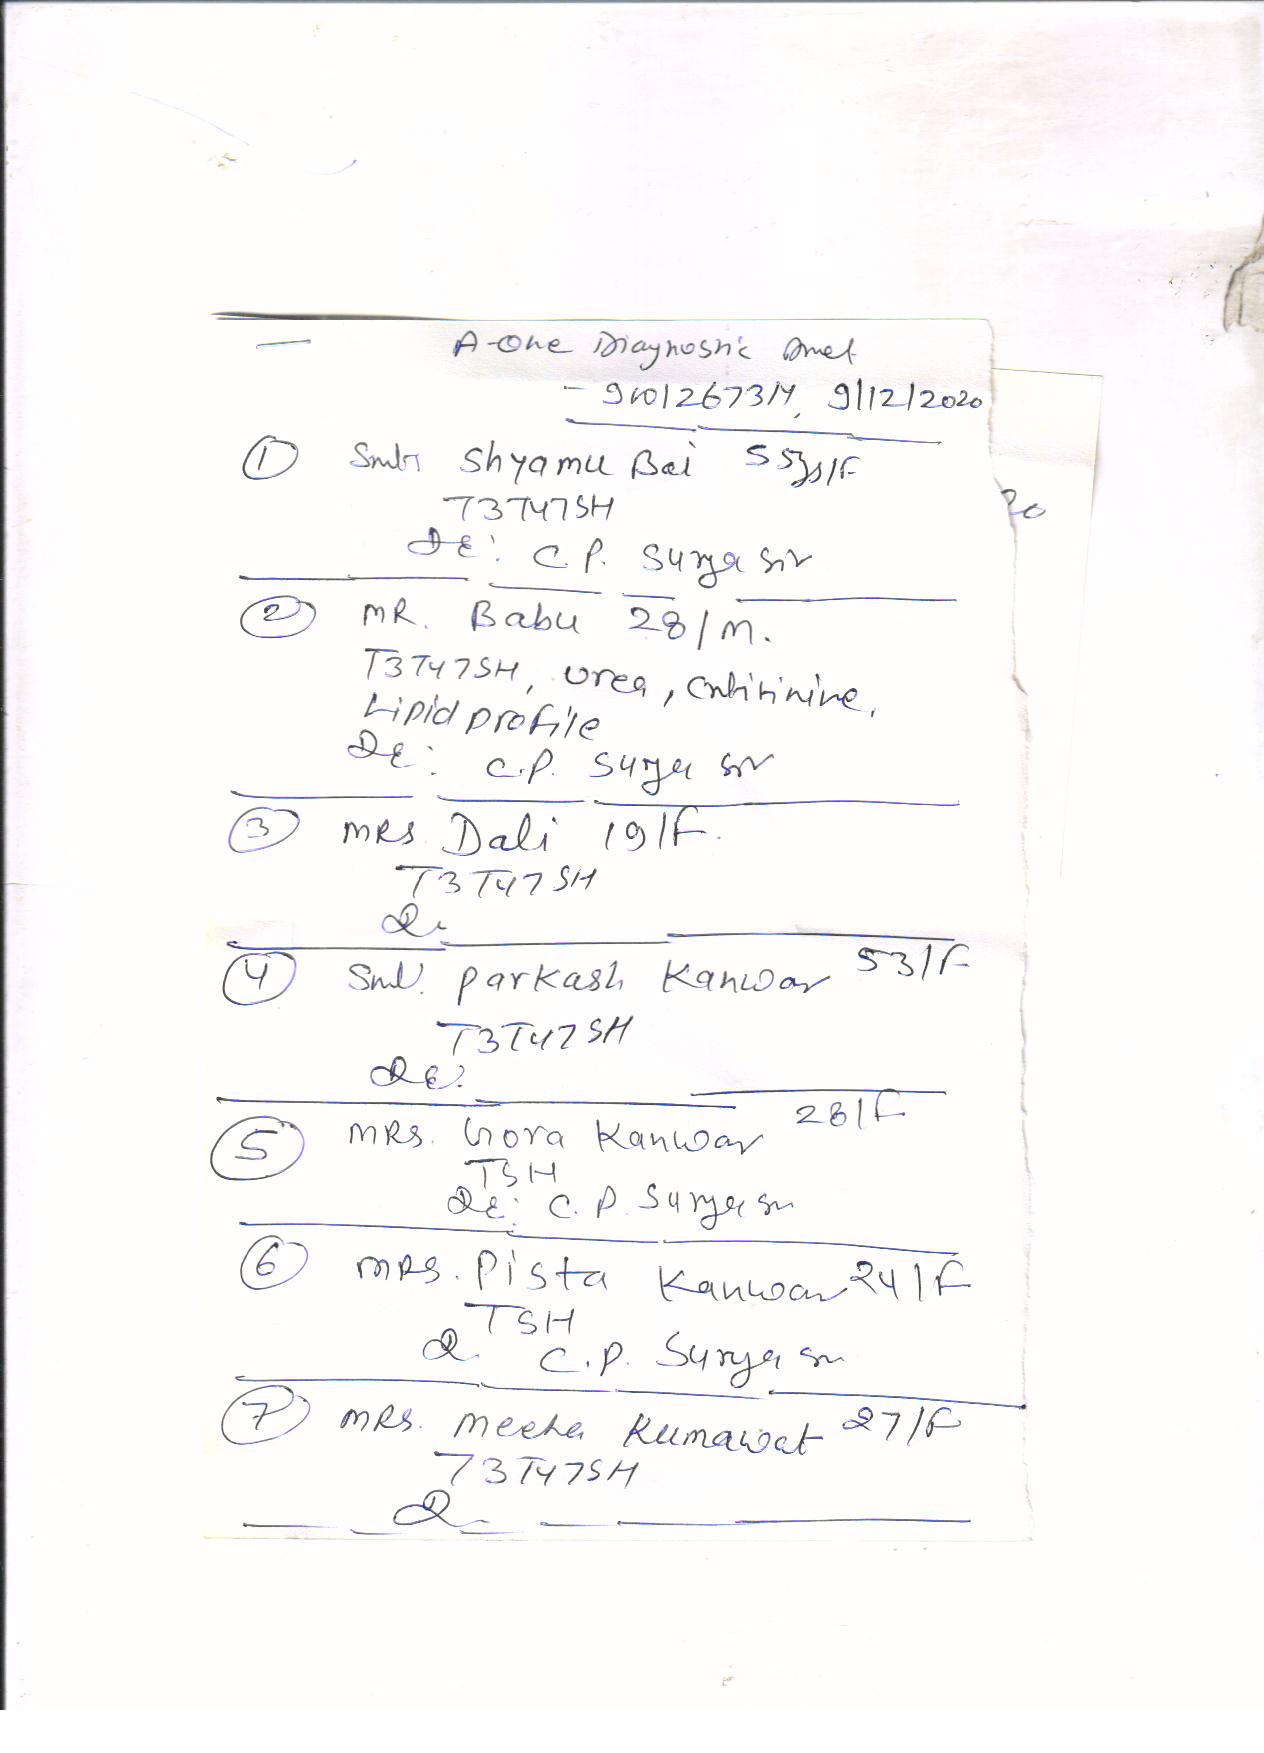 A-One Diagnostic Amet
9/12/2020
① Smt. Shyamu Bai 55ys/F
T3T4TSH
C.P. Surya sir
② MR. Babu 28/M.
T3T4TSH, urea,
Lipid profile
C.P. Surya sir
③ MRS Dali 19/F.
T3T4TSH
④ Smt. Parkash Kanwar 53/F
T3T4TSH
28/F
⑤ MRS. Gora Kanwar
TSH
C.P. Surya sir
⑥ MRS. Pista Kanwar 24/F
TSH
C.P. Surya sir
⑦ MRS. Meena Kumawat 27/F
T3T4TSH